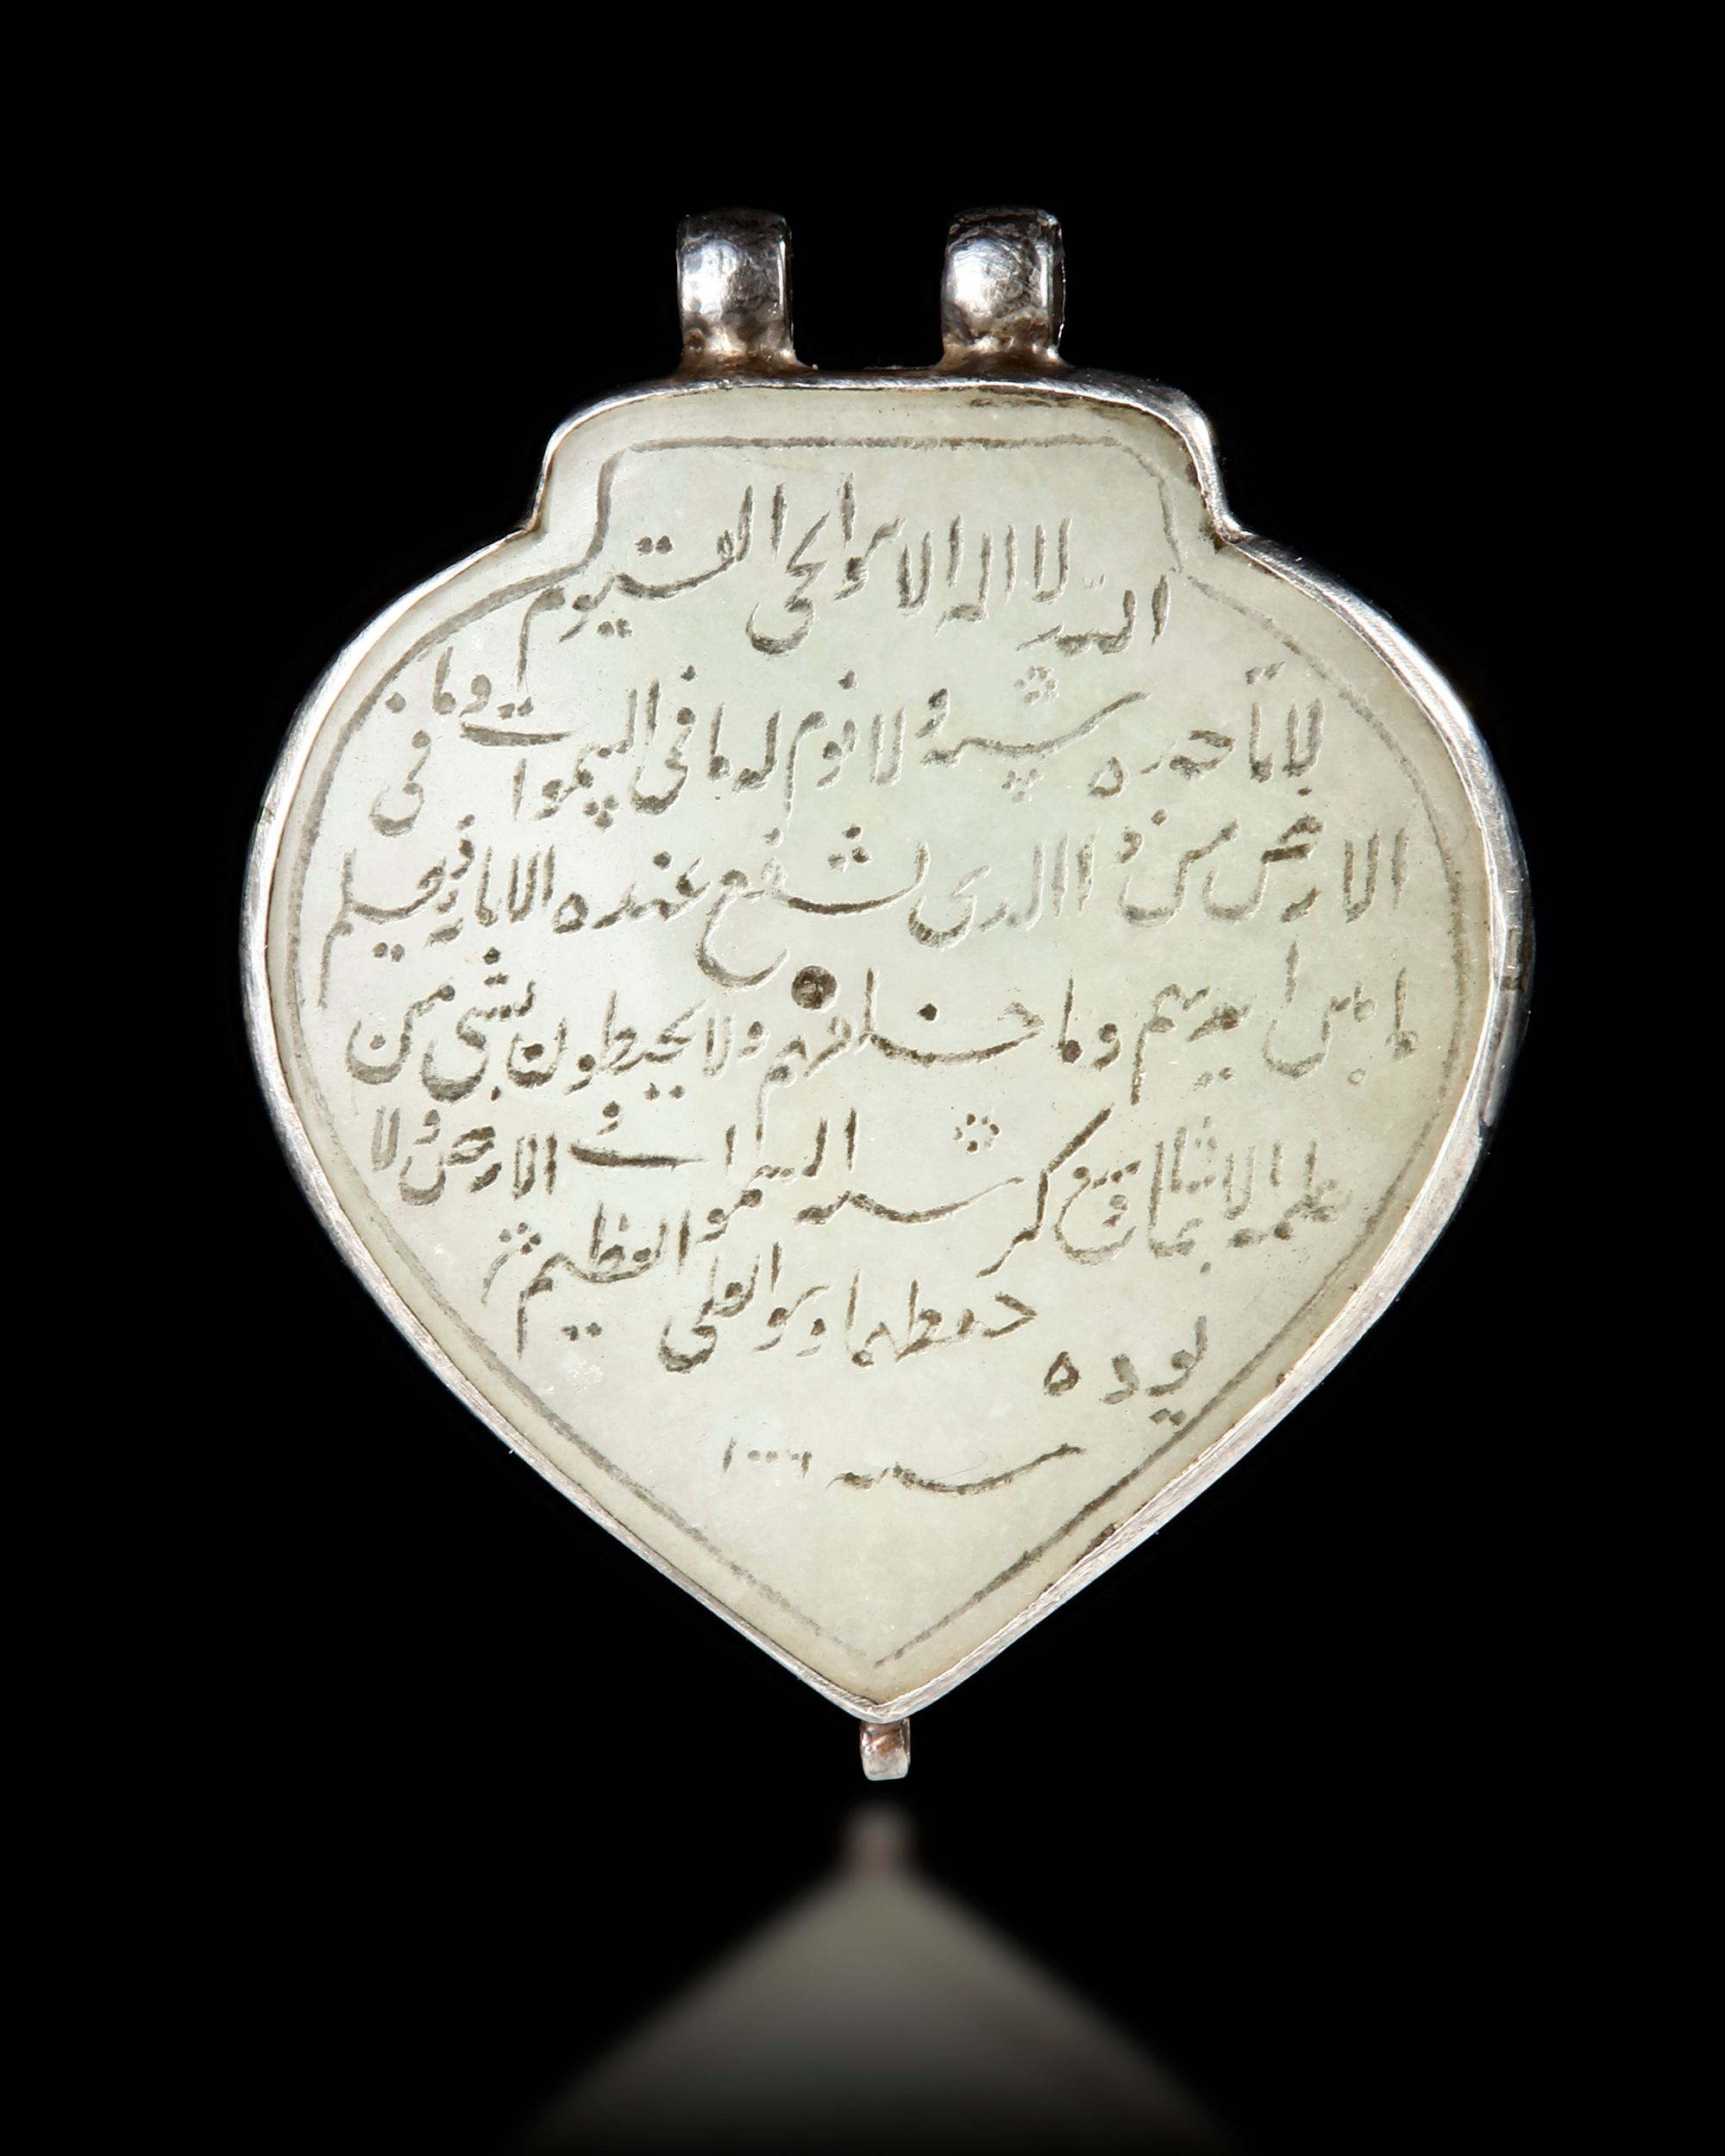 الله لا اله الا هو الحی القیوم
لا تاخذه سنه ولا نوم له ما فی السموات وما فی
الارض من ذا الذی یشفع عنده الا باذنه یعلم
ما بین ایدیهم وما خلفهم ولا یحیطون بشی من
علمه الا بما شا وسع کرسیه السموات و الارض ولا
یوده حفظهما وهو العلی العظیم
سنه ۱۰۰۶